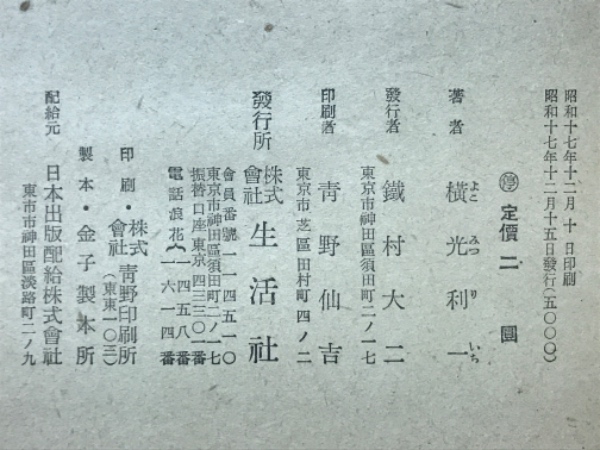 昭和十七年十二月十日印刷
昭和十七年十二月十五日發行(五〇〇〇)
㊡ 定價二圓
著者 橫光利一
よこ みつ り いち
發行者 鐵村大二
東京市神田區須田町二ノ一七
印刷者 靑野仙吉
東京市芝區田村町四ノ二
發行所 株式會社 生活社
會員番號一一四五一〇
東京市神田區須田町二ノ一七
振替口座東京四三三〇一番
電話浪花(一四五八番
一六一四番
印刷・株式會社靑野印刷所
(東東一〇三)
製本・金子製本所
配給元 日本出版配給株式會社
東市市神田區淡路町二ノ九